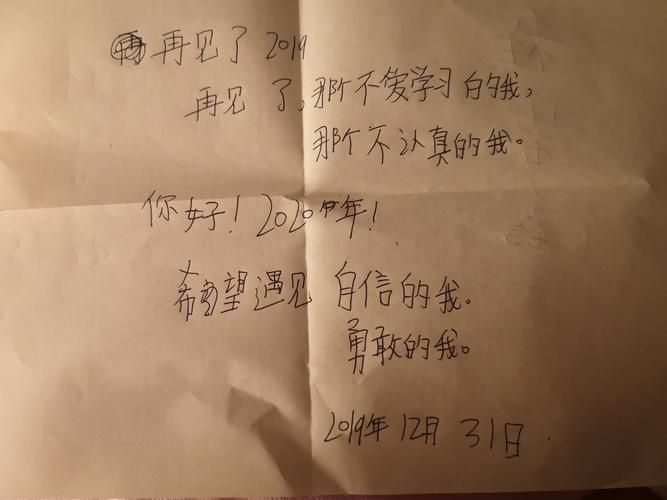 再见了 2019
再见了，那个不爱学习的我，
那个不认真的我。
你好！2020年！
希望遇见 自信的我。
勇敢的我。
2019年12月31日.